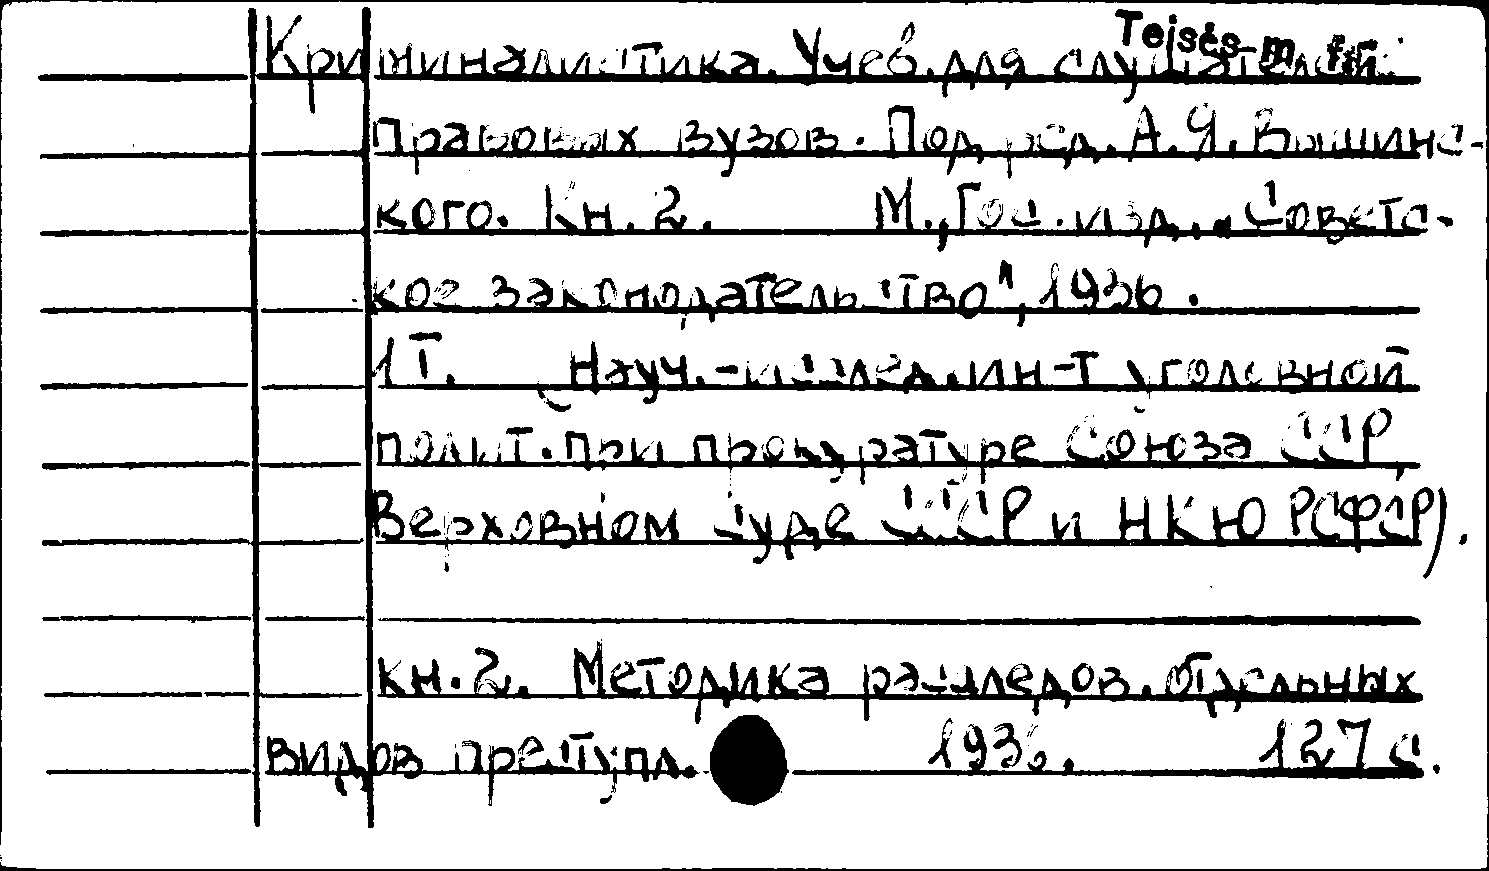 Teisės m. f-r.
Криминалистика. Учеб. для слушателей
правовых вузов. Под ред. А.Я. Вышинс-
кого. Кн. 2. М., Гос. изд. „Советс-
кое законодательство", 1936.
1 т. (Науч.-исслед. ин-т уголовной
полит. при прокуратуре Союза ССР,
Верховном суде СССР и НКЮ РСФСР).
кн. 2. Методика расследов. отдельных
видов преступл. 1936. 127 с.